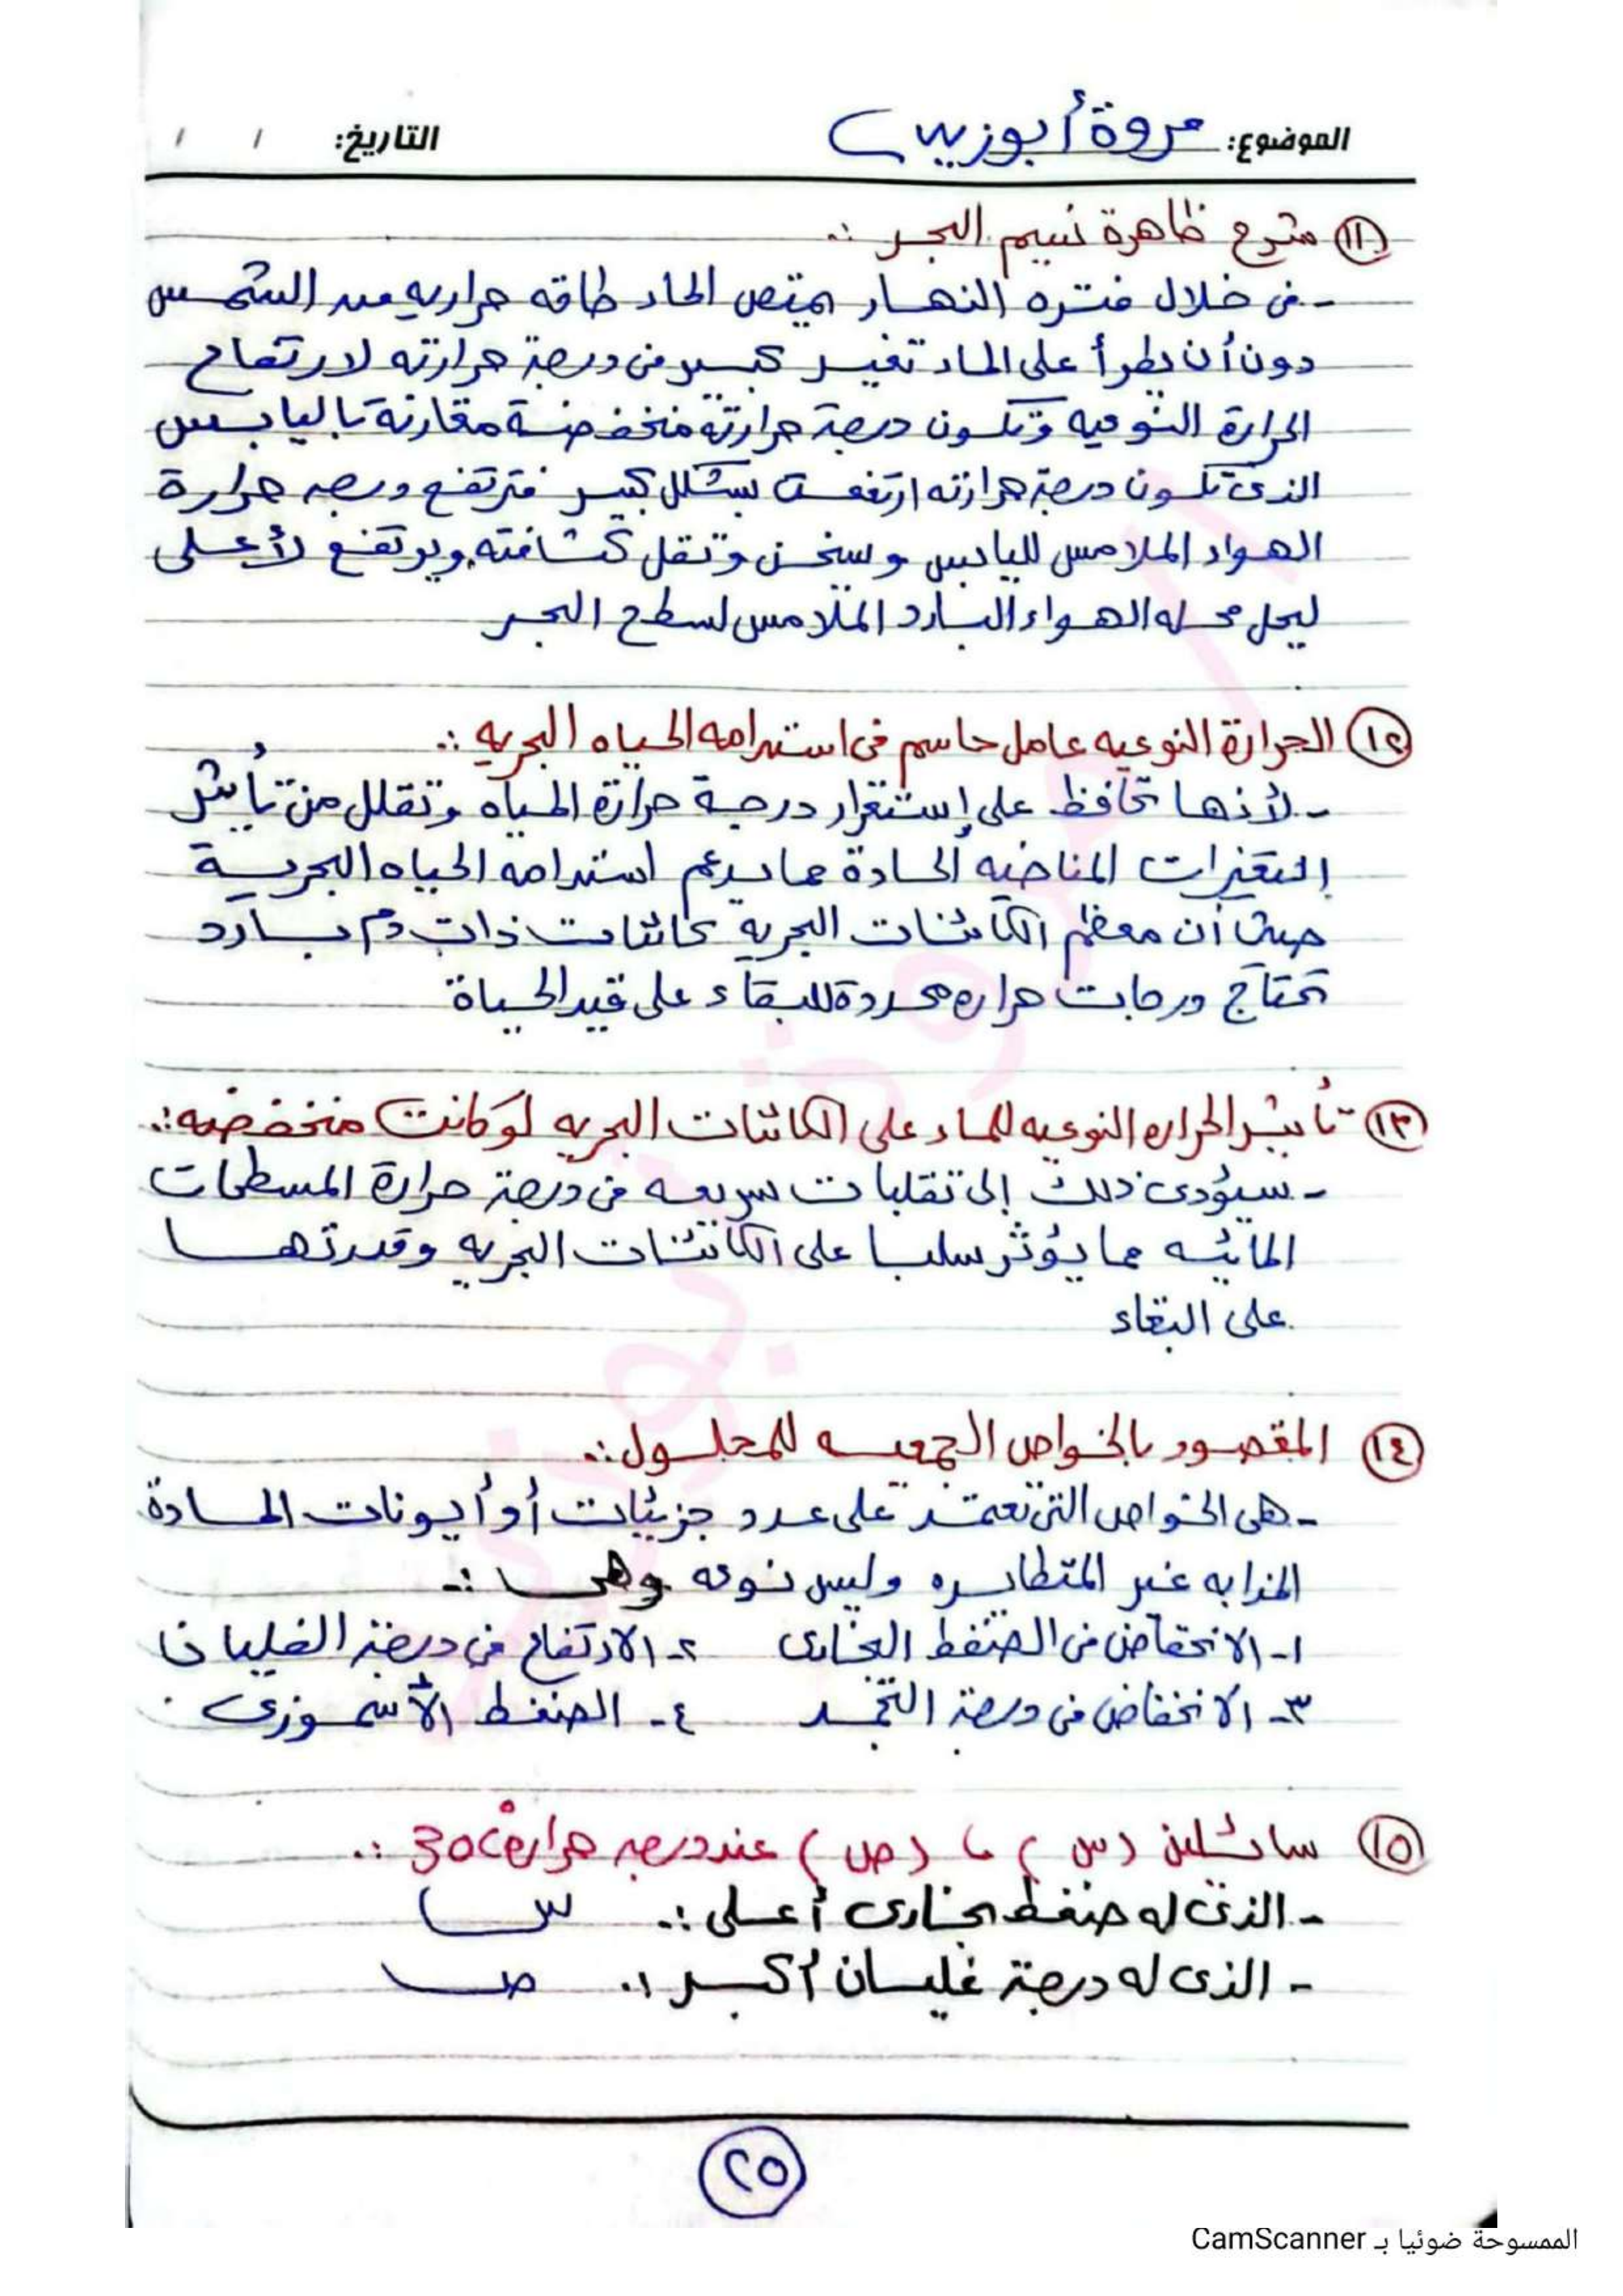 الموضوع: مروة أبوزيد التاريخ: / /
⑪ شرح ظاهرة نسيم البحر :.
- فى خلال فتره النهار يمتص الماء طاقه حراريه من الشمس
دون أن يطرأ على الماء تغير كبير فى درجة حرارته لارتفاع
الحرارة النوعيه وتكون درجة حرارته منخفضة مقارنة باليابس
الذى تكون درجة حرارته ارتفعت بشكل كبير فترتفع درجه حرارة
الهواء الملامس لليابس وسخن وتقل كثافته ويرتفع لأعلى
ليحل محله الهواء البارد الملامس لسطح البحر
⑫ الحرارة النوعيه عامل حاسم فى استدامه الحياه البحريه :.
- لأنها تحافظ على إستقرار درجة حرارة المياه وتقلل من تأثير
التغيرات المناخيه الحادة مما يدعم استدامه الحياه البحرية
حيث أن معظم الكائنات البحرية كائنات ذات دم بارد
تحتاج درجات حراره محددة للبقاء على قيد الحياة
⑬ تأثير الحراره النوعيه للماء على الكائنات البحريه لو كانت منخفضه :.
- سيؤدى ذلك إلى تقلبات سريعه فى درجة حرارة المسطحات
المائيه مما يؤثر سلبا على الكائنات البحريه وقدرتها
على البقاء
⑭ المقصود بالخواص الجمعيه للمحلول :.
- هى الخواص التى تعتمد على عدد جزيئات أو أيونات المادة
المذابه غير المتطايره وليس نوعه وهى :-
١- الانخفاض فى الضغط البخارى ٢- الارتفاع فى درجة الغليان
٣- الانخفاض فى درجة التجمد ٤- الضغط الأسموزى
⑮ سائلين (س) ، (ص) عند درجه حراره 30c° :.
- الذى له ضغط بخارى أعلى :. س
- الذى له درجة غليان أكبر :. ص
٢٥
الممسوحة ضوئيا بـ CamScanner